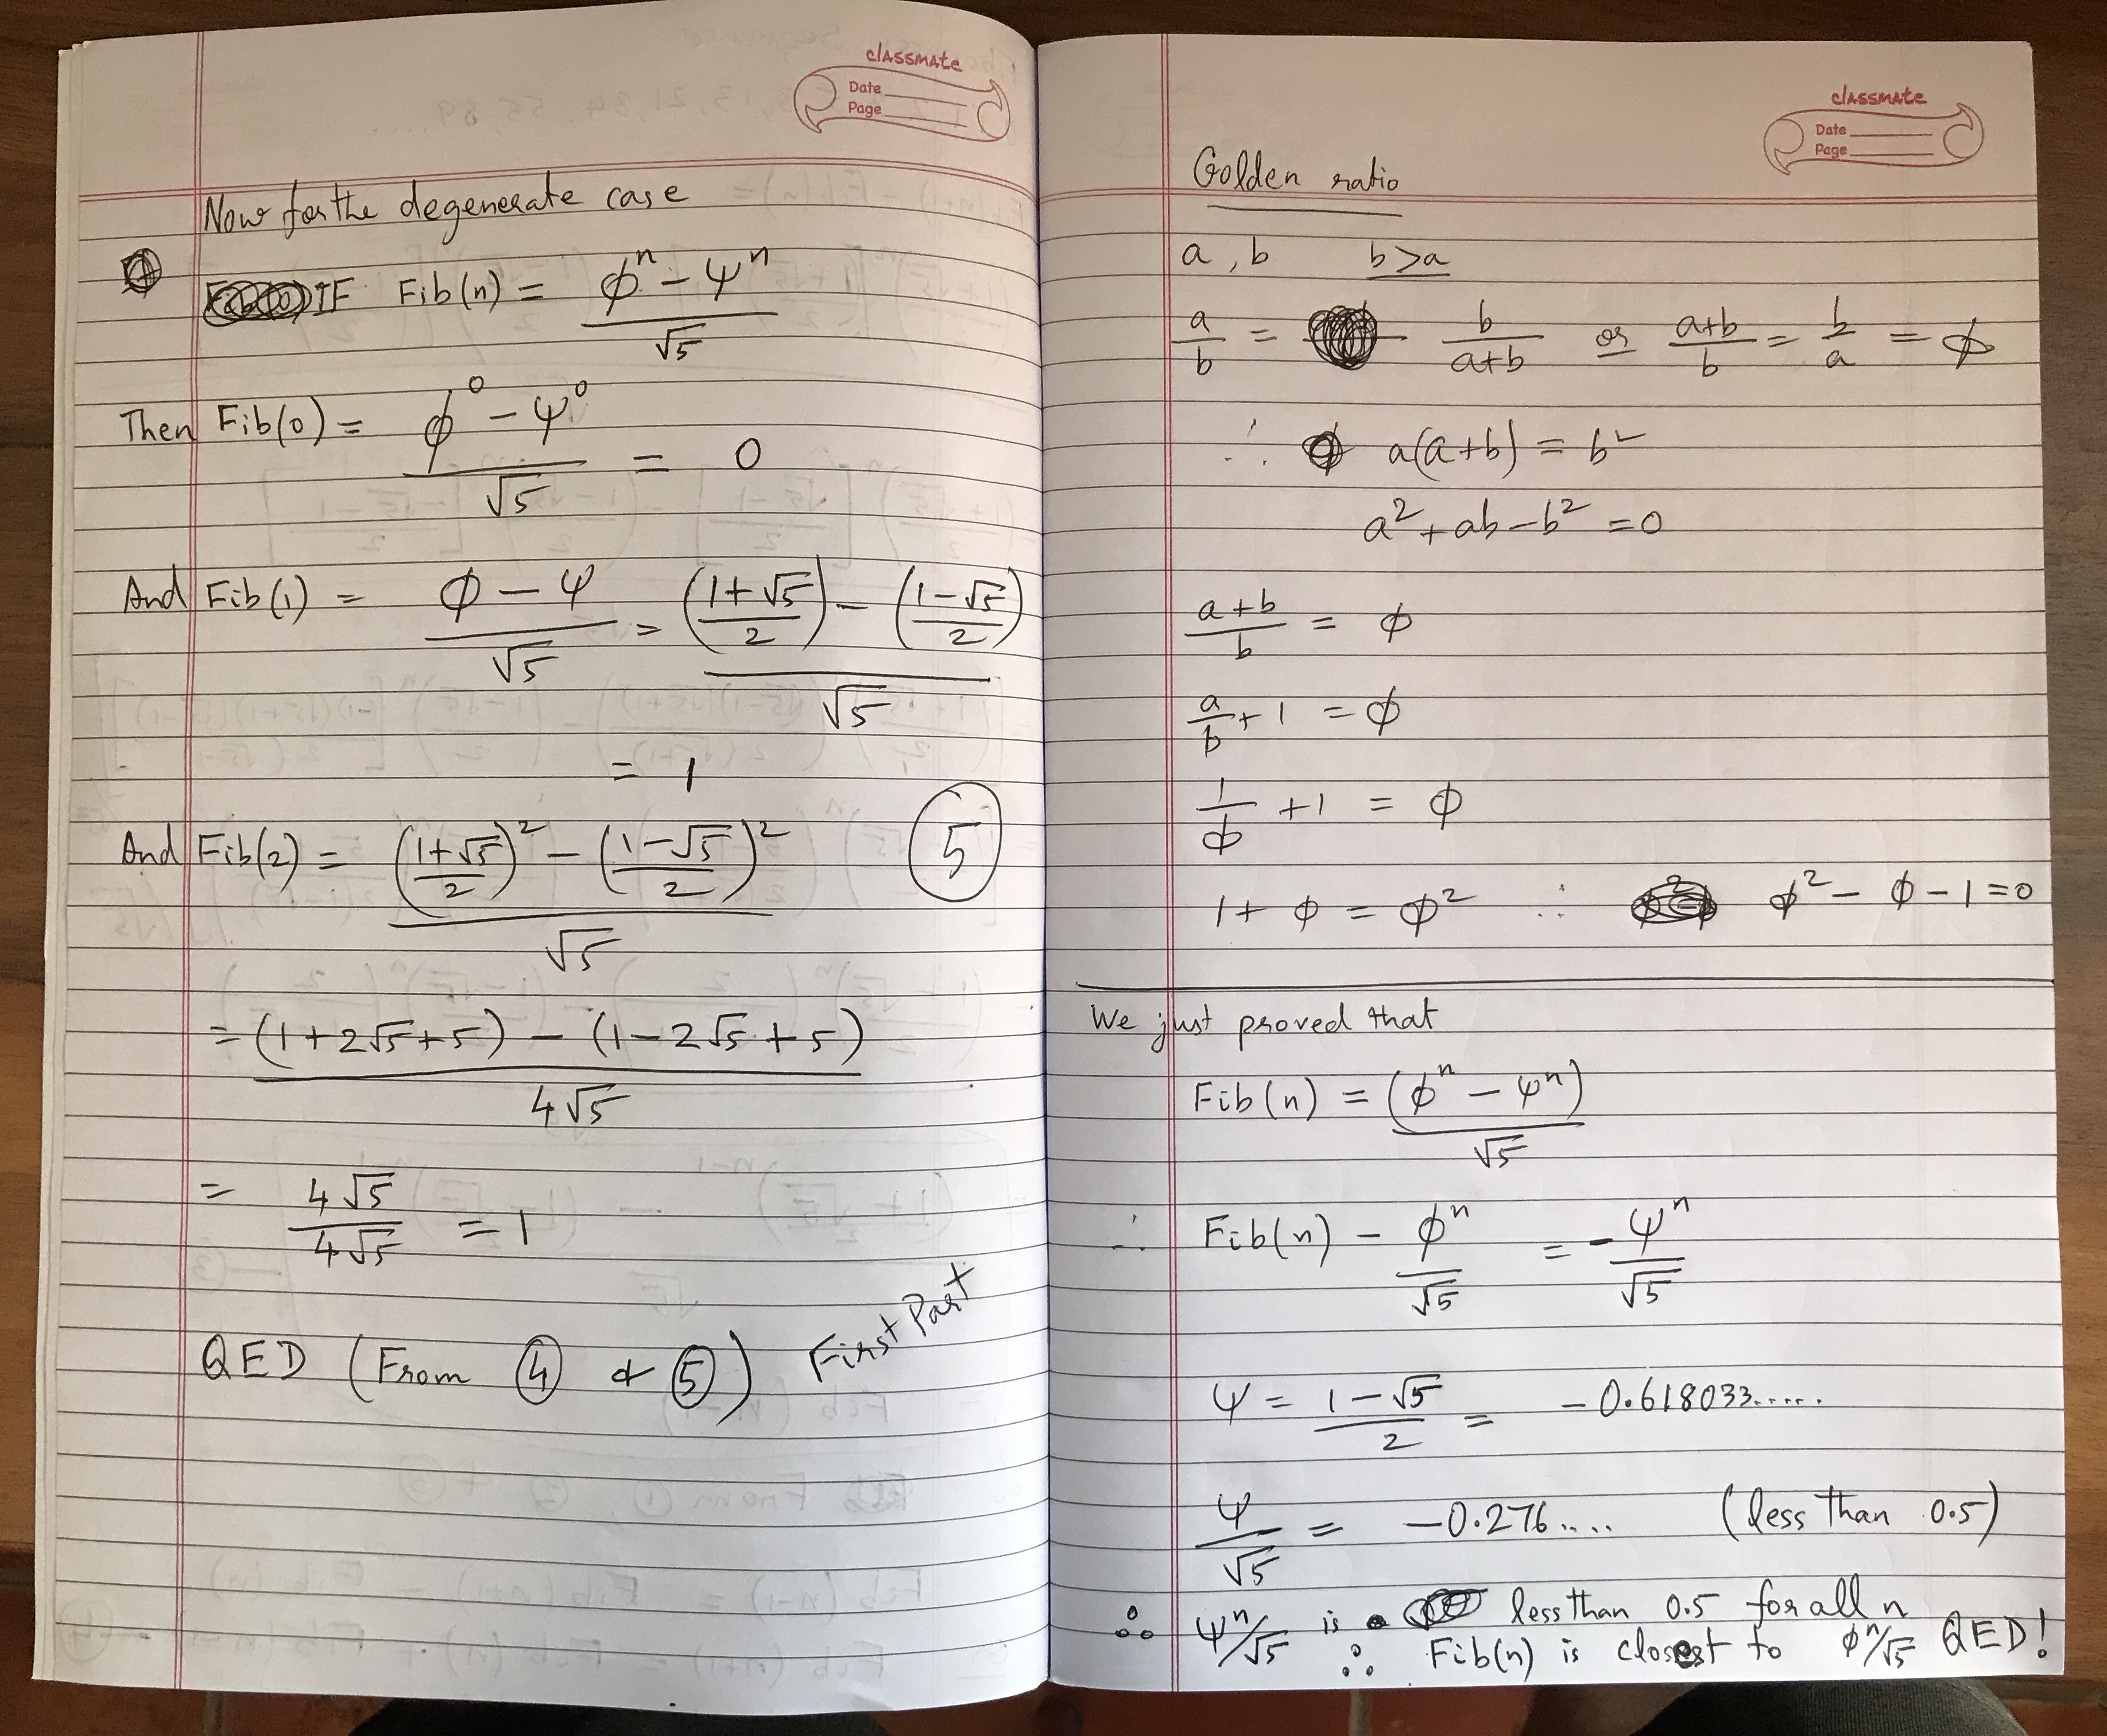 classmate
Date
Page
Now for the degenerate case
IF Fib(n) = (φ^n − ψ^n)/√5
Then Fib(0) = (φ^0 − ψ^0)/√5 = 0
And Fib(1) = (φ − ψ)/√5 = (((1+√5)/2) − ((1−√5)/2))/√5
= 1
And Fib(2) = (((1+√5)/2)^2 − ((1−√5)/2)^2)/√5 ⑤
= ((1+2√5+5) − (1−2√5+5))/(4√5)
= 4√5/4√5 = 1
QED (From ④ & ⑤) First Part
classmate
Date
Page
Golden ratio
a, b b>a
a/b = b/(a+b) or (a+b)/b = b/a = φ
∴ a(a+b) = b²
a² + ab − b² = 0
(a+b)/b = φ
a/b + 1 = φ
1/φ + 1 = φ
1 + φ = φ² ∴ φ² − φ − 1 = 0
We just proved that
Fib(n) = (φ^n − ψ^n)/√5
∴ Fib(n) − φ^n/√5 = −ψ^n/√5
ψ = (1−√5)/2 = −0.618033.....
ψ/√5 = −0.276.... (less than 0.5)
∴ ψ^n/√5 is less than 0.5 for all n
∴ Fib(n) is closest to φ^n/√5 QED!